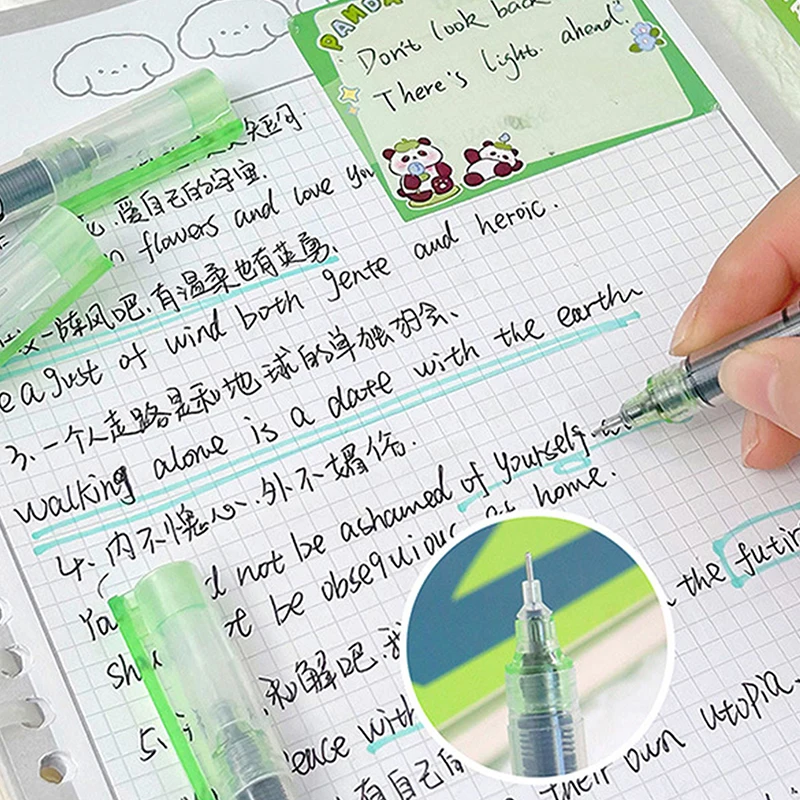 PANDA
Don't look back
There's light ahead!
短句.
爱自己的宇宙.
flowers and love you
一阵风吧.有温柔也有英勇.
e a gust of wind both gente and heroic.
3.一个人走路是和地球的单独约会、
walking alone is a date with the earth.
4.内不愧心.外不媚俗.
You d not be ashamed of yourself
sh t be obsequious at home.
the futin
5. 和解吧.我
ience with
有自己的
their own utopia.